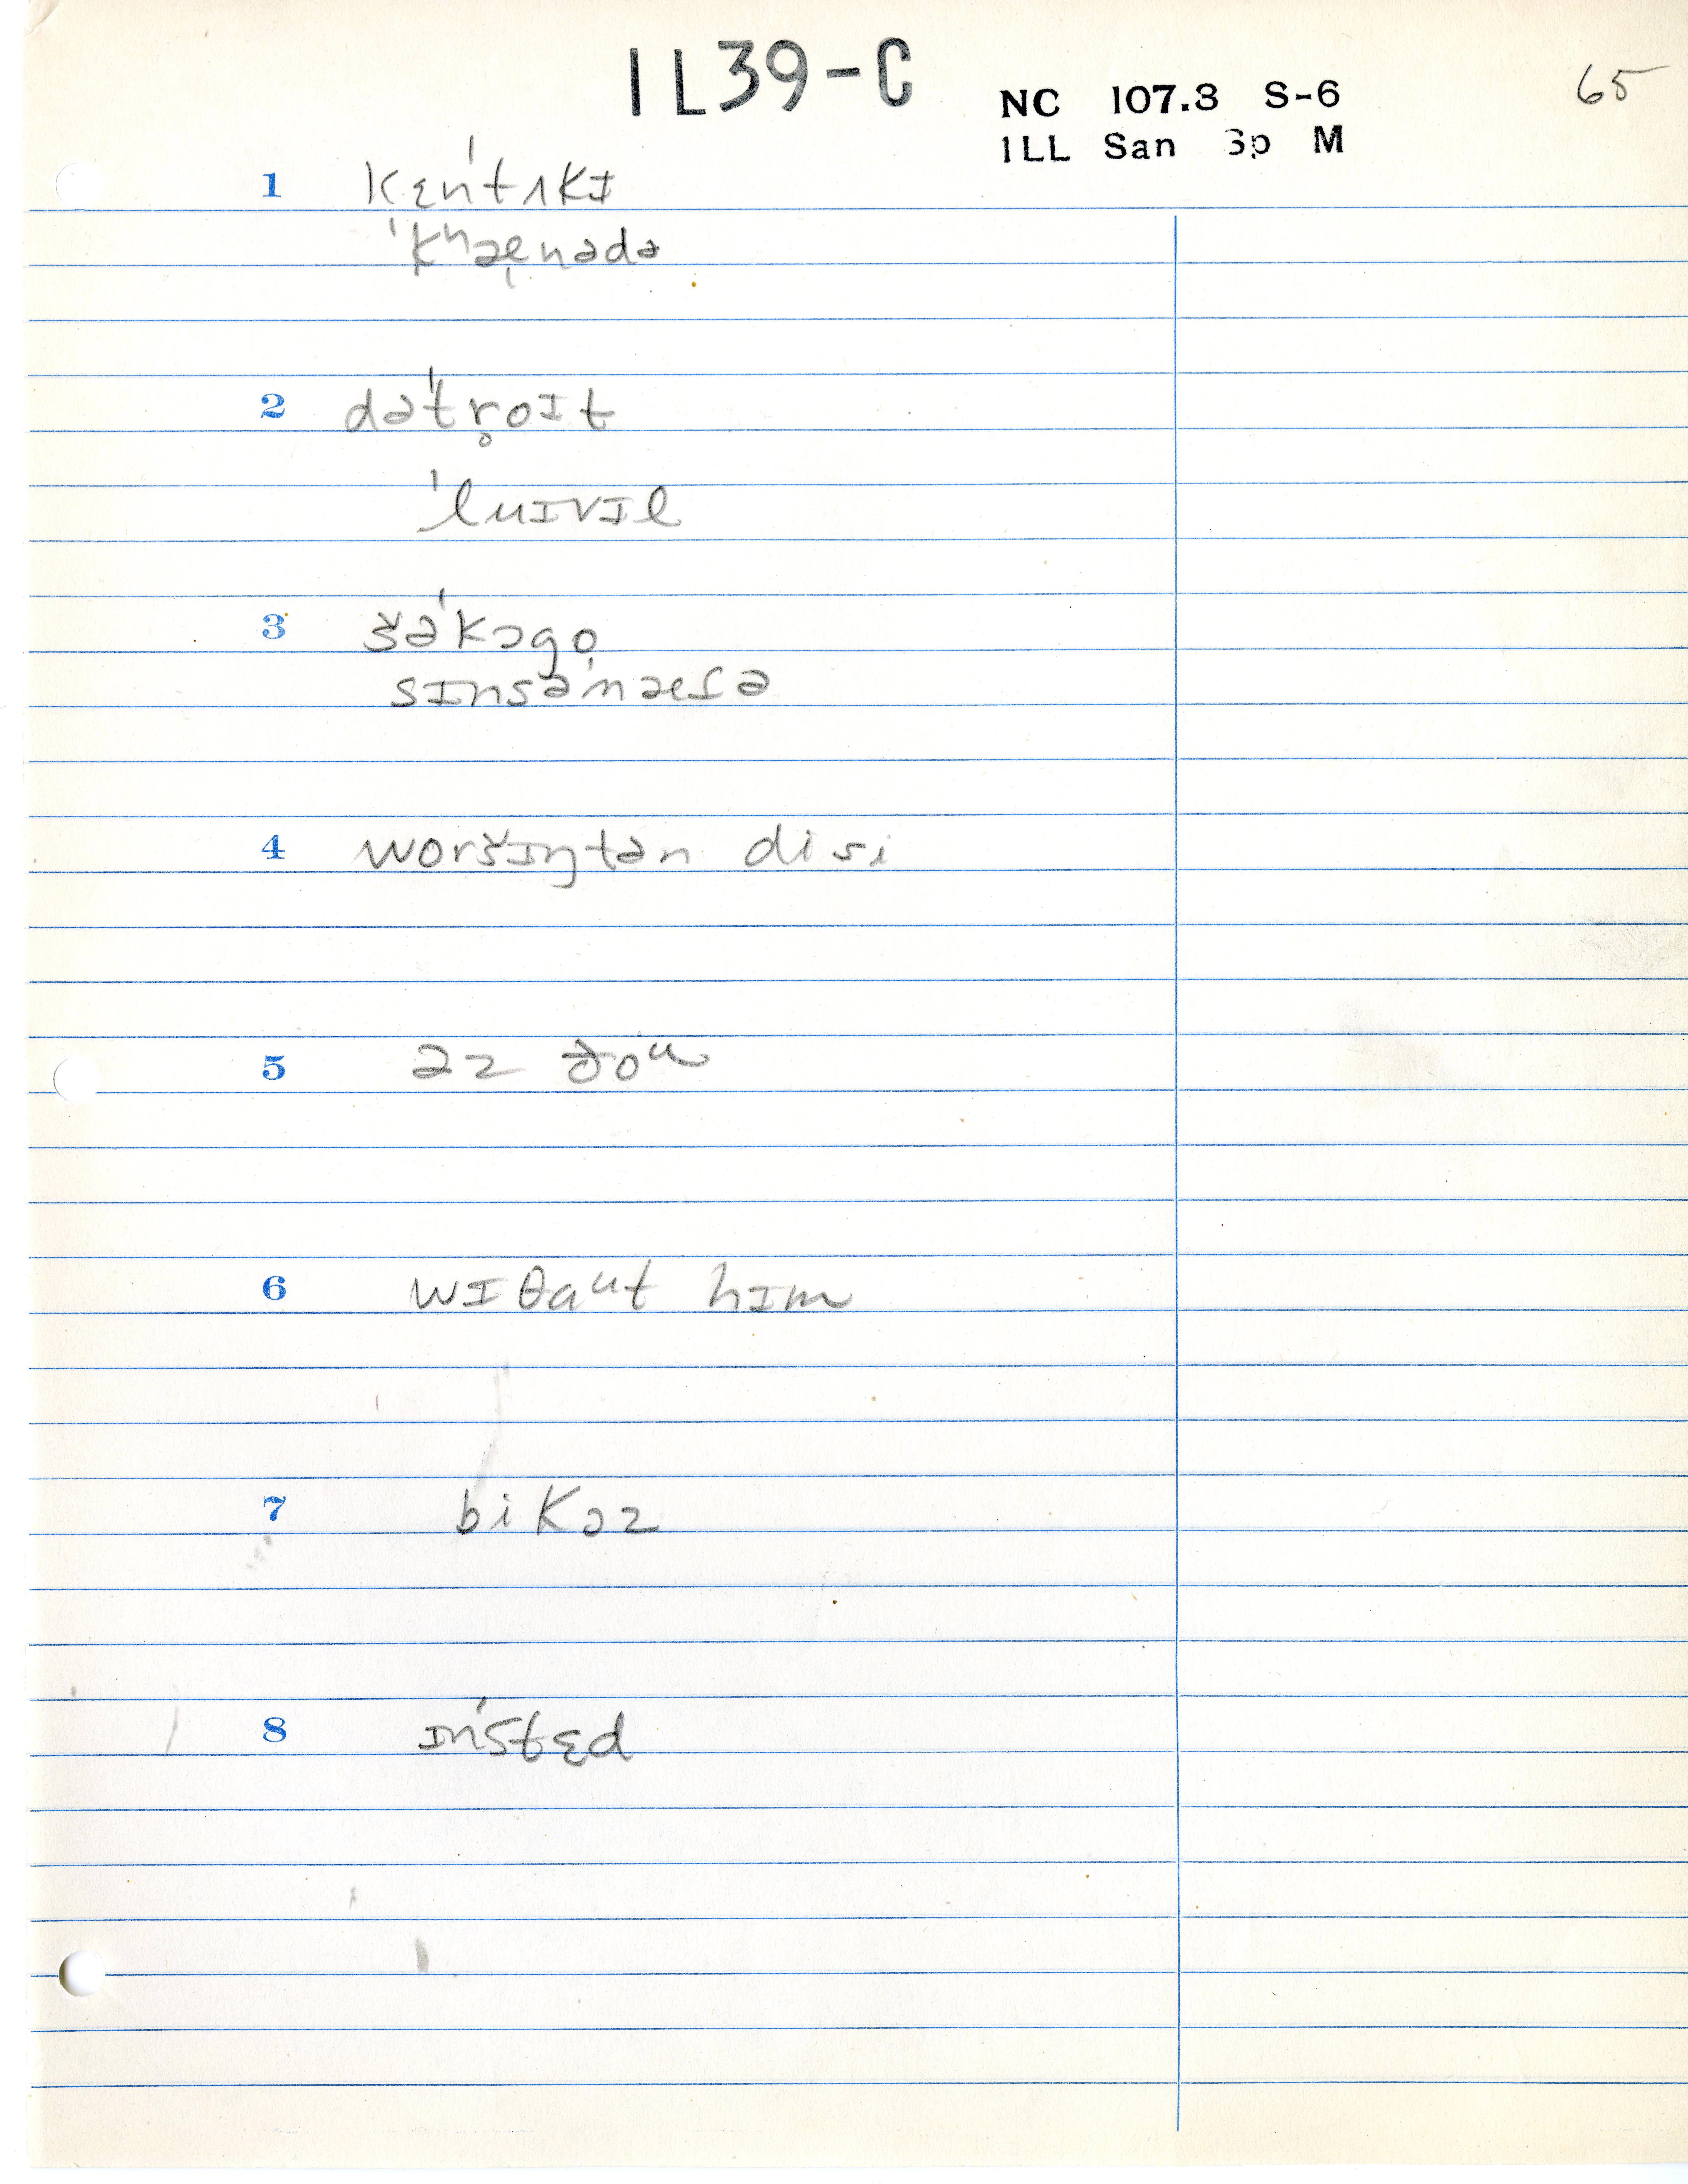 IL39-C
NC 107.3 S-6
65
ILL San Sp M
1 kɛnˈtʌkɪ
ˈkʰæ̨nədə
2 dəˈtr̥oɪt
ˈluɪvɪl
3 šəˈkɔgo̩
sɪnsəˈnæɾə
4 woršɪŋtən disi
5 əz ðoᵘ
6 wɪθaᵘt hɪm
7 bikɔz
8 ɪnˈstɛd